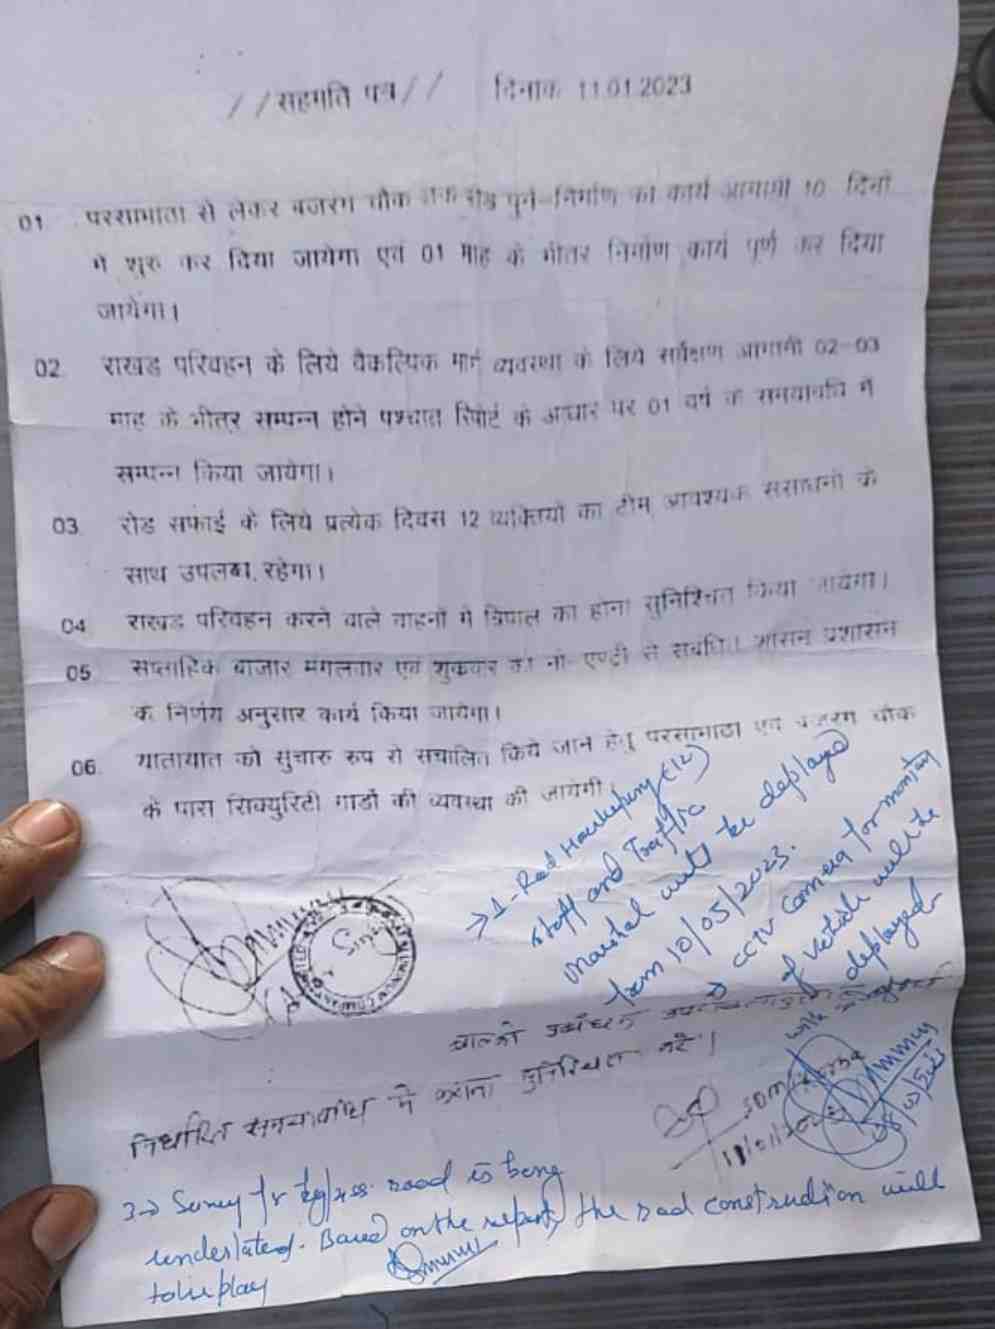 //सहमति पत्र// दिनांक 11.01.2023
01. परसाभाठा से लेकर बजरंग चौक तक रोड पुर्न-निर्माण का कार्य आगामी 10 दिनों
में शुरू कर दिया जायेगा एवं 01 माह के भीतर निर्माण कार्य पुर्ण कर दिया
जायेगा।
02. राखड परिवहन के लिये वैकल्पिक मार्ग व्यवस्था के लिये सर्वेक्षण आगामी 02-03
माह के भीतर सम्पन्न होने पश्चात रिपोर्ट के आधार पर 01 वर्ष के समयावधि में
सम्पन्न किया जायेगा।
03. रोड सफाई के लिये प्रत्येक दिवस 12 व्यक्तियों का टीम आवश्यक संसाधनों के
साथ उपलब्ध रहेगा।
04 राखड परिवहन करने वाले वाहनों में त्रिपाल का होना सुनिश्चित किया जायेगा।
05 सप्ताहिक बाजार मंगलवार एवं शुक्रवार का नो-एण्ट्री से संबंधित शासन प्रशासन
के निर्णय अनुसार कार्य किया जायेगा।
06. यातायात को सुचारु रूप से संचालित किये जाने हेतु परसाभाठा एवं बजरंग चौक
के पास सिक्युरिटी गार्डो की व्यवस्था की जायेगी।
→ 1- Road Housekeeping (12)
staff and Traffic
marshal will be deployed
from 10/05/2023.
→ CCTV Camera for
of vehicle will be
deployed
बाल्को प्रबंधन
निर्धारित समयावधि में कराना सुनिश्चित करें।
SDM Korba
11/01/2023
3→ Survey for road is being
Based on the report, the road construction will